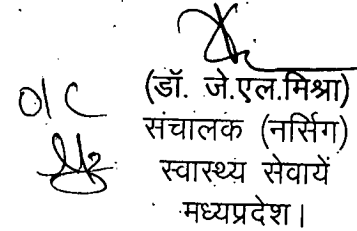 (डॉ. जे.एल.मिश्रा)
O/C संचालक (नर्सिग)
स्वास्थ्य सेवायें
मध्यप्रदेश।